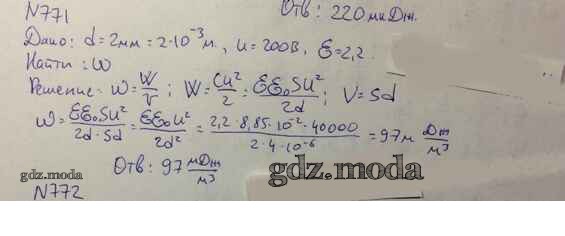 N771
Отв: 220 мкДж.
Дано: d=2мм=2·10⁻³м., u=200В, Ɛ=2,2
Найти: ω
Решение: ω=W/V; W=Cu²/2=ƐƐ₀Su²/2d; V=Sd
ω=ƐƐ₀Su²/2d·Sd=ƐƐ₀u²/2d²=2,2·8,85·10⁻²·40000/2·4·10⁻⁶=97м Дж/м³
Отв: 97 мДж/м³
gdz.moda
gdz.moda
N772